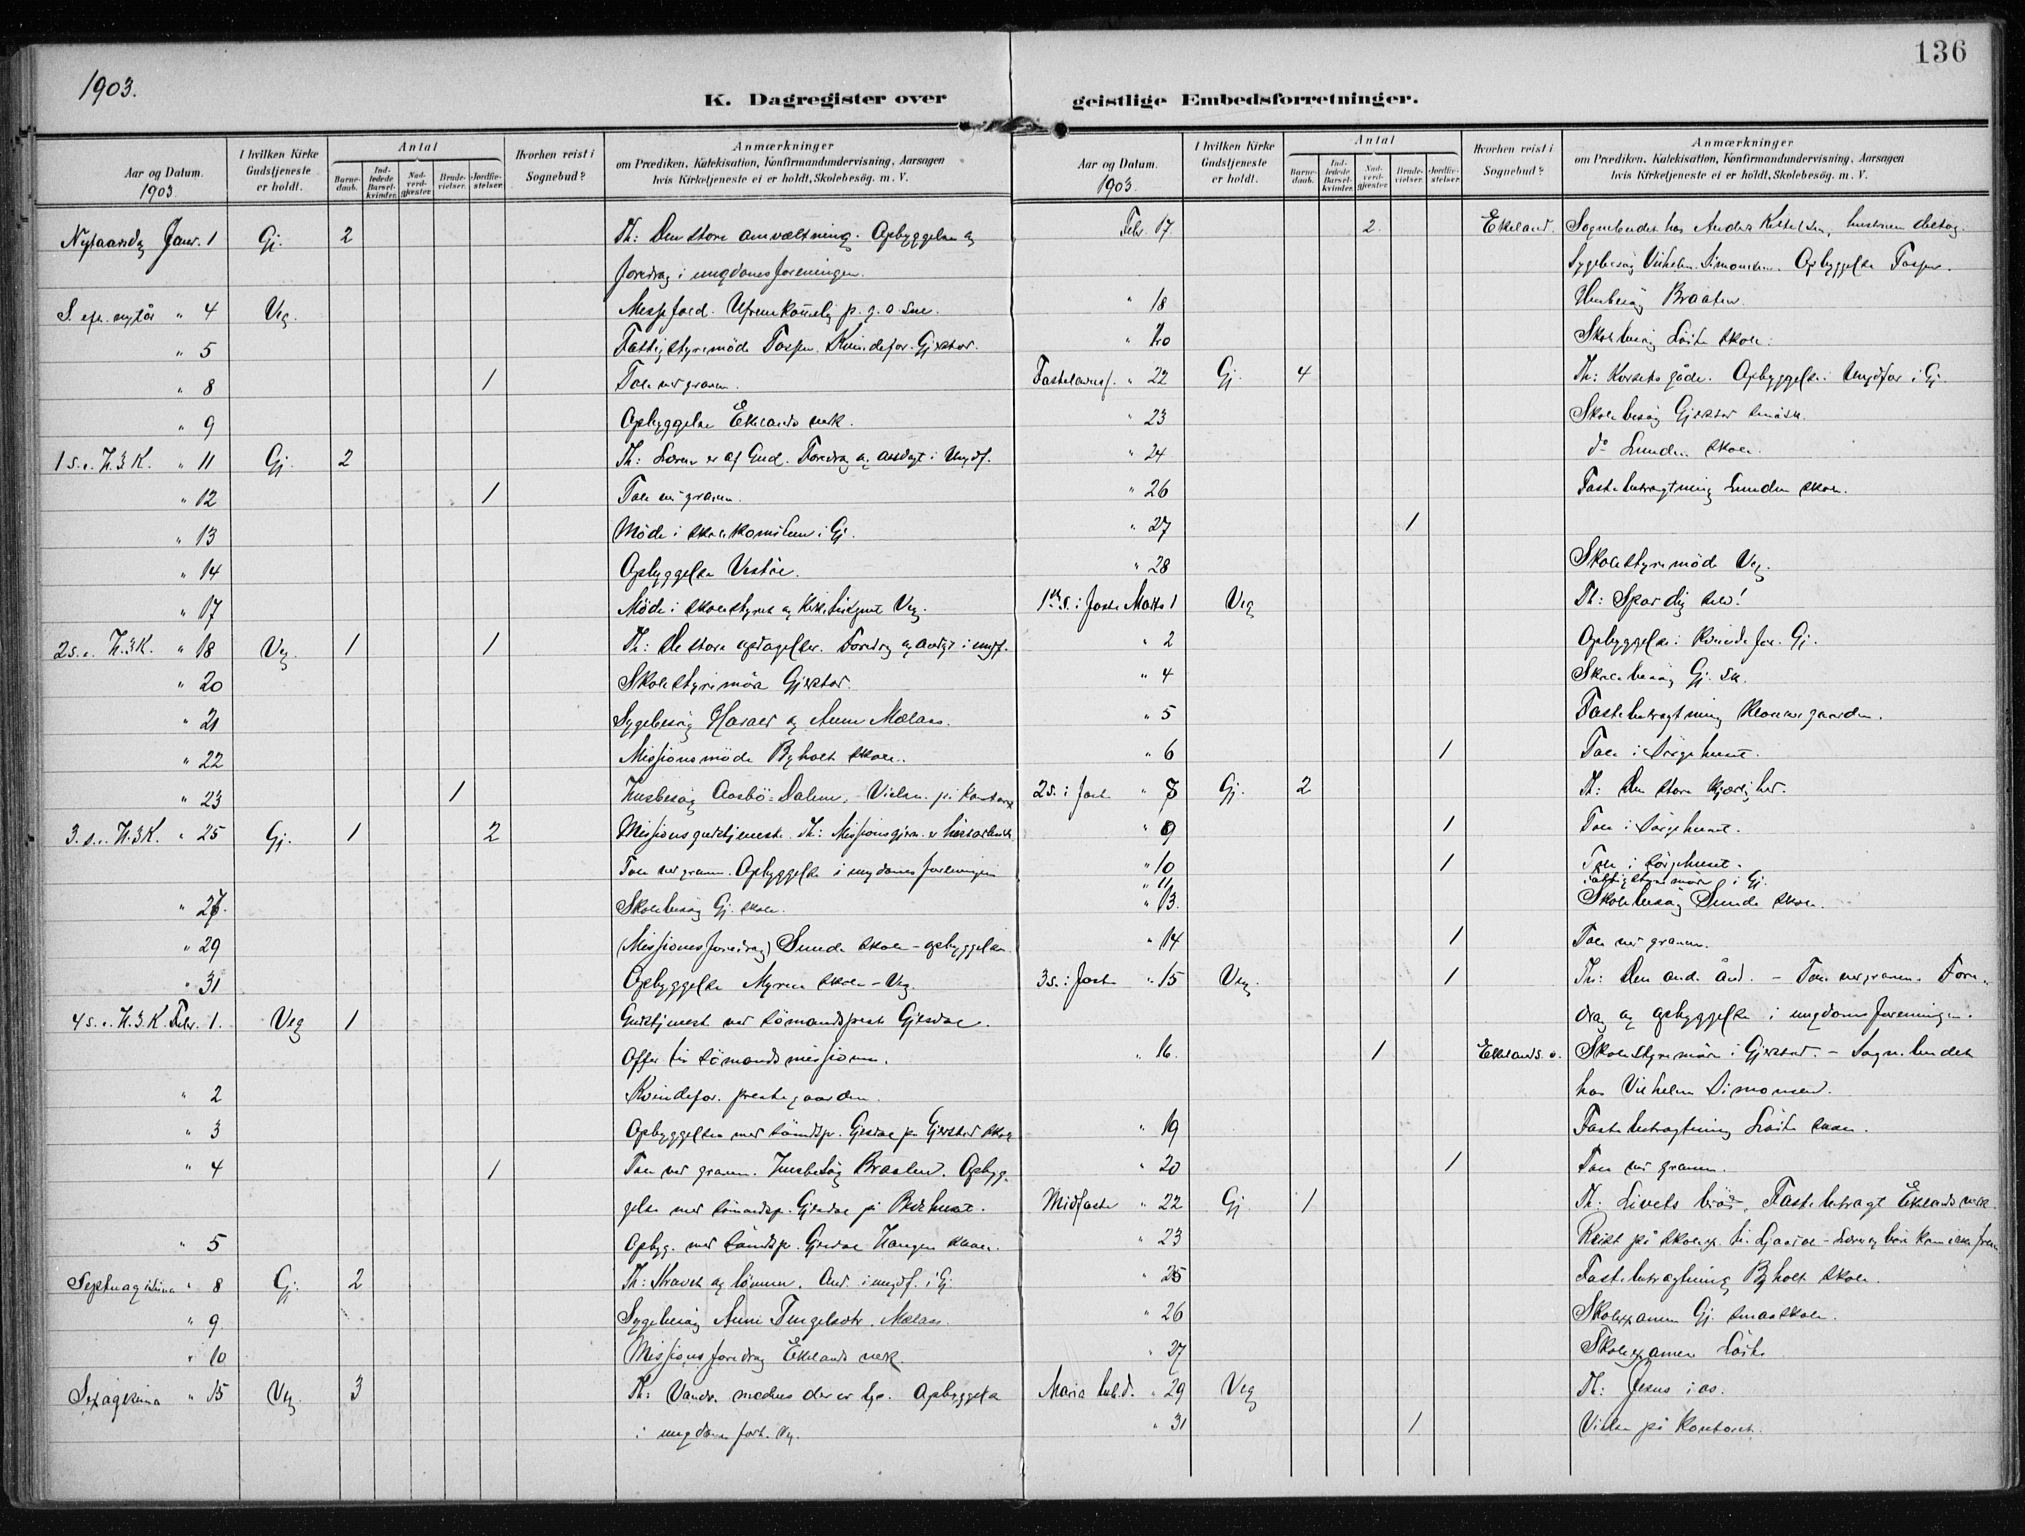 136
1903.
K. Dagregister over geistlige Embedsforretninger.
Aar og Datum. 1903.
I hvilken Kirke Gudstjeneste er holdt.
Antal
Barnedaab.
Indledede Barselkvinder.
Nadverdgjester.
Brudevielser.
Jordfæstelser.
Hvorhen reist i Sognebud?
Anmærkninger
om Prædiken, Katekisation, Konfirmandundervisning, Aarsagen
hvis Kirketjeneste ei er holdt, Skolebesøg. m. V.
Nytaarsdag Janr. 1 Gj. 2 Th: Den store omvæltning. Opbyggelse og
foredrag i ungdomsforeningen.
S. eft. nytår " 4 Veg. Messefald. Ufremkommelig p. g. a. sne.
" 5 Fattigstyremöde Kvindefor. Gjerstad.
" 8 1 Tale ved graven.
" 9 Opbyggelse Eklands verk.
1 s. e. H.3K. " 11 Gj. 2 Th: Læren er af Gud. Foredrag og andagt i Ungdf.
" 12 1 Tale ved graven.
" 13 Möde i Gj.
" 14 Opbyggelse
" 17 Möde i skolestyret og Veg.
2 s. e. H.3K. " 18 Veg. 1 1 Th: De store opdagelser. Foredrag og andagt i ungdf.
" 20 Skolestyremöde Gjerstad.
" 21 Sygebesög og Anne Mælaas.
" 22 Missionsmöde Byholt skole.
" 23 1 Husbesög Aasbö-Dalene. Vielse på kontoret
3. s. e. H.3K. " 25 Gj. 1 2 Missionsgudstjeneste. Th:
Tale ved graven. Opbyggelse i ungdomsforeningen
" 27. Skolebesög Gj. skole.
" 29 (Missionsforedrag) Sunde skole - opbyggelse
" 31 Opbyggelse Myren skole - Veg.
4 s. e. H.3.K. Febr. 1. Veg 1 Gudstjeneste ved sömandsprest Gjesdal.
Offer til sömandsmissionen.
" 2 Kvindefor. prestegaarden.
" 3 Opbyggelse med sömdspr. Gjesdal på Gjerstad skole
" 4 1 Tale ved graven. Husbesög Braaten. Opbyg-
gelse med sömandspr. Gjesdal på Bedehuset.
" 5 Opbyg. med sömdspr. Gjesdal Haugen skole.
Septuagesima " 8 Gj. 2 Th: Kravet og lönnen. And. i ungdf. i Gj.
" 9 Sygebesög Anne Mælaas.
" 10 Missionsforedrag Eklands verk.
Sexagesima " 15 Veg. 3 Th: Vandr. medens der er lys. Opbyggelse
i ungdoms forh. Veg.
Aar og Datum. 1903.
I hvilken Kirke Gudstjeneste er holdt.
Antal
Barnedaab.
Indledede Barselkvinder.
Nadverdgjester.
Brudevielser.
Jordfæstelser.
Hvorhen reist i Sognebud?
Anmærkninger
om Prædiken, Katekisation, Konfirmandundervisning, Aarsagen
hvis Kirketjeneste ei er holdt, Skolebesøg. m. V.
Febr. 17 2. Ekeland. Sognebudet hos Anders Kittelsen, hustruen deltog.
Sygebesög Vilhelm Simonsen. Opbyggelse
" 18 Husbesög Braaten.
" 20 Skolebesög Löite skole.
Fastelavnsf. " 22 Gj. 4 Th: Korsets gåde. Opbyggelse i Ungdfor i Gj.
" 23 Skolebesög Gjerstad småsk.
" 24 do Lunden skole.
" 26 Fastebetragtning Lunden skole.
" 27 1
" 28 Skolestyremöde Veg.
1ste s. i faste Marts 1 Veg Th: Spar dig selv!
" 2 Opbyggelse i Kvindefor. Gj.
" 4 Skolebesög Gj. sk.
" 5 Fastebetragtning
" 6 1 Tale i sörgehuset.
2 s. i fast. " 8 Gj. 2 Th: Den store kjærlighed.
" 9 1 Tale i sörgehuset.
" 10 1 Tale i sörgehuset.
" 11 Fattigstyremöde i Gj.
" 13. Skolebesög Sunde skole.
" 14 1 Tale ved graven.
3 s. i faste " 15 Veg. 1 Th: Den onde Ånd. - Tale ved graven. Fore-
drag og opbyggelse i ungdomsforeningen.
" 16. 1 Ekelands v. Skolestyremöde i Gjerstad. - Sognebudet
hos Vilhelm Simonsen.
" 19 Fastebetragtning Löite skole.
" 20 1 Tale ved graven.
Midfaste " 22 Gj. 1 Th: Livets bröd, Fastebetragt Eklands verk.
" 23 Reist på
" 25 Fastebetragtning Byholt skole.
" 26 Skoleexamen Gj. smaaskole.
" 27 Skoleexamen Löite
Maria bud. " 29 Veg Th: Jesus i os.
" 31 1 Vielse på kontoret.